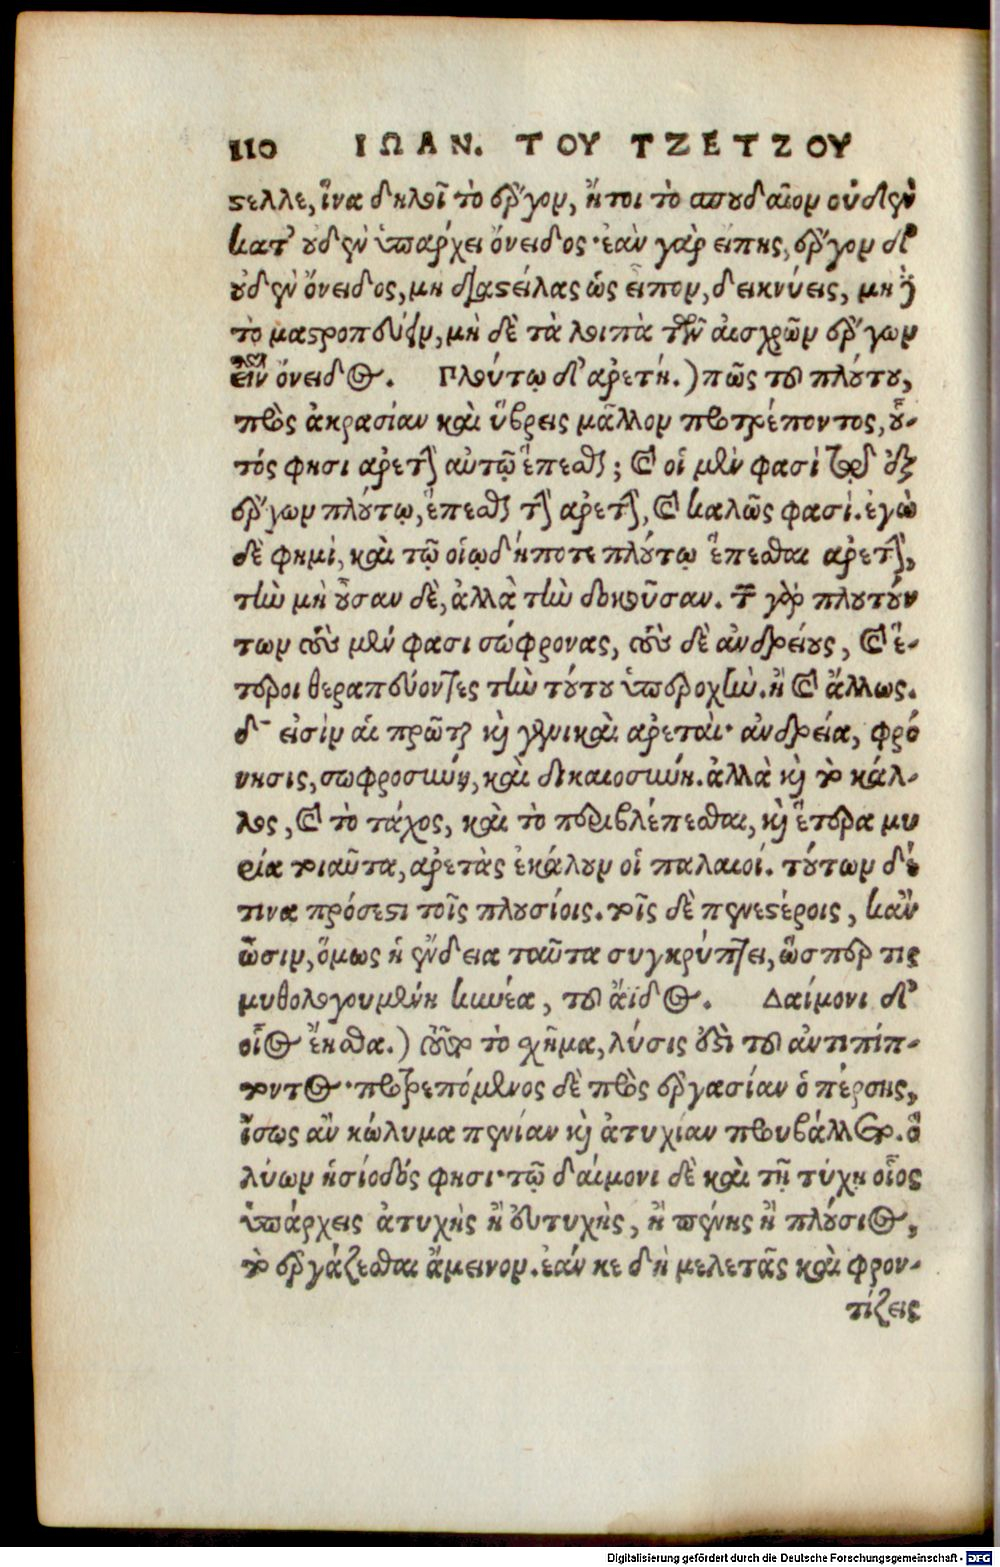 110 ΙΩΑΝ. ΤΟΥ ΤΖΕΤΖΟΥ
στελλε, ἵνα δηλοῖ τὸ ἔργον, ἤτοι τὸ σπουδαῖον οὐδὲν
κατ' οὐδὲν ὑπάρχει ὄνειδος· ἐὰν γὰρ εἴπῃς, ἔργον δ'
οὐδὲν ὄνειδος, μὴ διαστείλας ὡς εἶπον, δεικνύεις, μὴ δὲ
τὸ μαστροπεύειν, μὴ δὲ τὰ λοιπὰ τῶν αἰσχρῶν ἔργων
εἶναι ὄνειδος. Πλούτῳ δ' ἀρετή.) πῶς τοῦ πλούτου,
πρὸς ἀκρασίαν καὶ ὕβρεις μᾶλλον προτρέποντος, οὗ-
τός φησι ἀρετὴν αὐτῷ ἕπεσθαι; καὶ οἱ μὲν φασὶ τῷ δ' ἐξ
ἔργων πλούτῳ, ἕπεσθαι τὴν ἀρετὴν, καὶ καλῶς φασί. ἐγὼ
δὲ φημὶ, καὶ τῷ οἱῳδήποτε πλούτῳ ἕπεσθαι ἀρετὴν,
τὴν μὴ οὖσαν δὲ, ἀλλὰ τὴν δοκοῦσαν. τῶν γὰρ πλουτούν
των οὓς μὲν φασι σώφρονας, οὓς δὲ ἀνδρείους, καὶ ἕ-
τεροι θεραπεύοντες τὴν τούτου ὑπεροχήν. ἢ καὶ ἄλλως.
δ̄ εἰσὶν αἱ πρῶται καὶ γενικαὶ ἀρεταὶ· ἀνδρεία, φρό
νησις, σωφροσύνη, καὶ δικαιοσύνη. ἀλλὰ καὶ τὸ κάλ-
λος, καὶ τὸ τάχος, καὶ τὸ περιβλέπεσθαι, καὶ ἕτερα μυ
ρία τοιαῦτα, ἀρετὰς ἐκάλουν οἱ παλαιοί. τούτων δέ
τινα πρόσεστι τοῖς πλουσίοις. τοῖς δὲ πενεστέροις, κἂν
ὦσιν, ὅμως ἡ ἔνδεια ταῦτα συγκρύπτει, ὥσπερ τις
μυθολογουμένη κυνέα, τοῦ ἄϊδος. Δαίμονι δ'
οἷος ἔησθα.) τὸ σχῆμα, λύσις ἐστὶ τοῦ ἀντιπίπ-
τοντος· προτρεπόμενος δὲ πρὸς ἐργασίαν ὁ πέρσης,
ἴσως ἂν κώλυμα πενίαν καὶ ἀτυχίαν προυβάλλετο. ὃ
λύων ἡσίοδός φησι· τῷ δαίμονι δὲ καὶ τῇ τύχῃ οἷος
ὑπάρχεις ἀτυχὴς ἢ εὐτυχὴς, ἢ πένης ἢ πλούσιος,
τὸ ἐργάζεσθαι ἄμεινον. ἐάν κε δὴ μελετᾷς καὶ φρον-
τίζεις
Digitalisierung gefördert durch die Deutsche Forschungsgemeinschaft - DFG